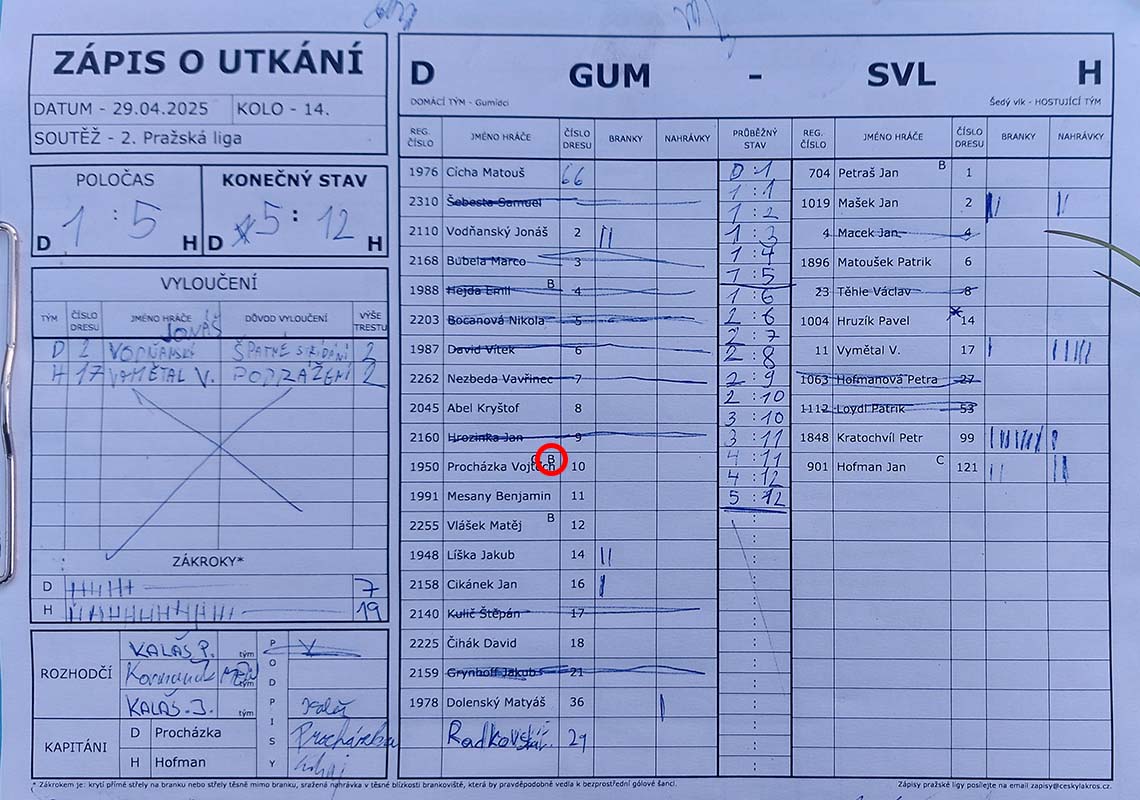 ZÁPIS O UTKÁNÍ
DATUM - 29.04.2025 KOLO - 14.
SOUTĚŽ - 2. Pražská liga
POLOČAS
D 1 : 5 H
KONEČNÝ STAV
D 5 : 12 H
VYLOUČENÍ
TÝM ČÍSLO DRESU JMÉNO HRÁČE DŮVOD VYLOUČENÍ VÝŠE TRESTU
JONÁŠ
D 2 VODŇANSKÝ ŠPATNÉ STŘÍDÁNÍ 2
H 17 VYMĚTAL V. PODRAŽENÍ 2
ZÁKROKY*
D 7
H 19
ROZHODČÍ
KALÁŠ P. tým
tým
KALÁŠ J. tým
PODPISY
KAPITÁNI
D Procházka Procházka
H Hofman
D GUM - SVL H
DOMÁCÍ TÝM - Gumídci Šedý vlk - HOSTUJÍCÍ TÝM
REG. ČÍSLO JMÉNO HRÁČE ČÍSLO DRESU BRANKY NAHRÁVKY PRŮBĚŽNÝ STAV REG. ČÍSLO JMÉNO HRÁČE ČÍSLO DRESU BRANKY NAHRÁVKY
1976 Cícha Matouš 66
2310 Šebesta Samuel
2110 Vodňanský Jonáš 2
2168 Bubela Marco 3
1988 Hejda Emil B 4
2203 Bocanová Nikola 5
1987 David Vítek 6
2262 Nezbeda Vavřinec 7
2045 Abel Kryštof 8
2160 Hrozinka Jan 9
1950 Procházka Vojtěch C B 10
1991 Mesany Benjamin 11
2255 Vlášek Matěj B 12
1948 Líška Jakub 14
2158 Cikánek Jan 16
2140 Kulič Štěpán 17
2225 Čihák David 18
2159 Grynhoff Jakub 21
1978 Dolenský Matyáš 36
29
0:1
1:1
1:2
1:3
1:4
1:5
1:6
2:6
2:7
2:8
2:9
2:10
3:10
3:11
4:11
4:12
5:12
704 Petraš Jan B 1
1019 Mašek Jan 2
4 Macek Jan 4
1896 Matoušek Patrik 6
23 Těhle Václav 8
1004 Hruzík Pavel 14
11 Vymětal V. 17
1063 Hofmanová Petra 27
1112 Loydl Patrik 53
1848 Kratochvíl Petr 99
901 Hofman Jan C 121
* Zákrokem je: krytí přímé střely na branku nebo střely těsně mimo branku, sražená nahrávka v těsné blízkosti brankoviště, která by pravděpodobně vedla k bezprostřední gólové šanci.
Zápisy pražské ligy posílejte na email zapisy@ceskylakros.cz.